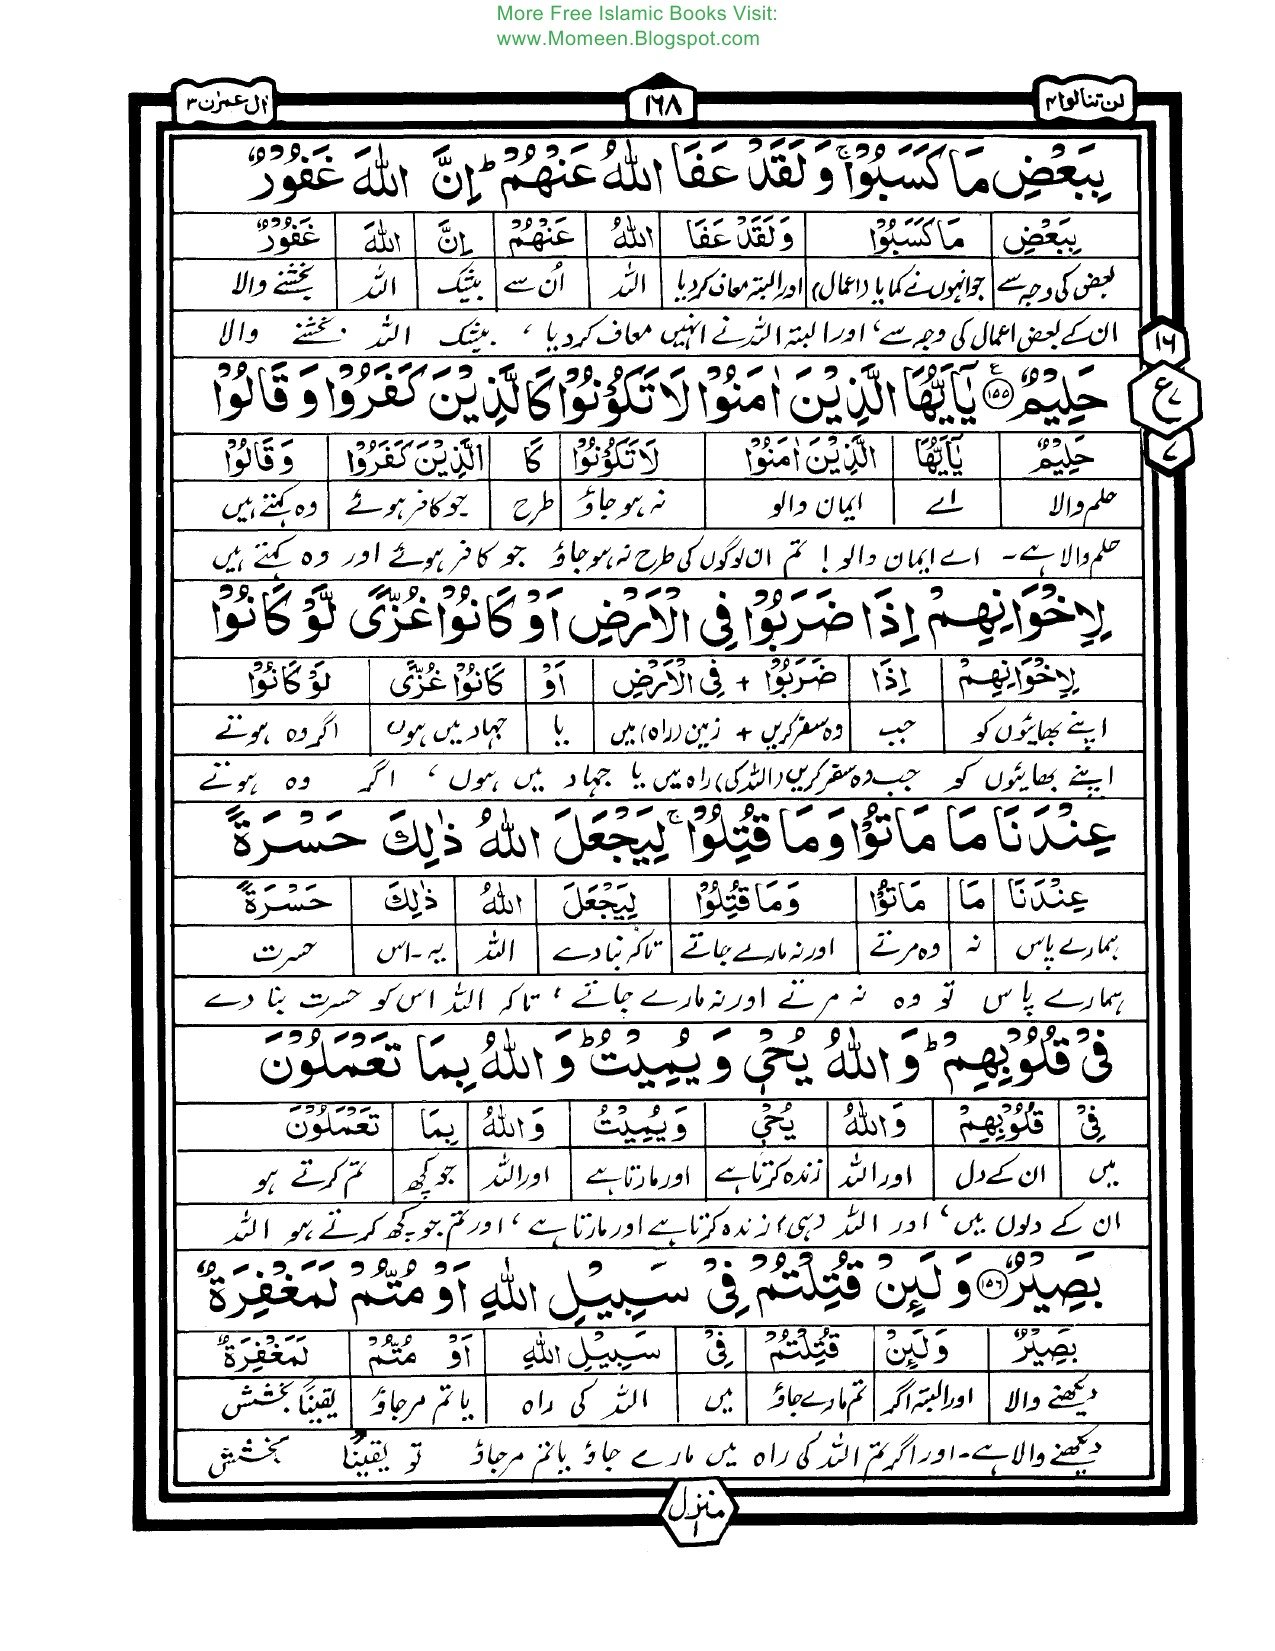 More Free Islamic Books Visit:
www.Momeen.Blogspot.com
لن تنالوا ۴ ۱۶۸ اٰل عمرٰن ۳
بِبَعْضِ مَا كَسَبُوْا ۚ وَلَقَدْ عَفَا اللّٰهُ عَنْهُمْ ؕ اِنَّ اللّٰهَ غَفُوْرٌ
بِبَعْضِ مَا كَسَبُوْا وَلَقَدْ عَفَا اللّٰهُ عَنْهُمْ اِنَّ اللّٰهَ غَفُوْرٌ
بعض کی وجہ سے جو انہوں نے کمایا (اعمال) اور البتہ معاف کردیا اللہ اُن سے بیشک اللہ بخشنے والا
ان کے بعض اعمال کی وجہ سے، اور البتہ اللہ نے انہیں معاف کردیا، بیشک اللہ بخشنے والا
۱۶
ع ۷
۷
حَلِيْمٌ ۱۵۵ يٰۤاَيُّهَا الَّذِيْنَ اٰمَنُوْا لَا تَكُوْنُوْا كَالَّذِيْنَ كَفَرُوْا وَقَالُوْا
حَلِيْمٌ يٰۤاَيُّهَا الَّذِيْنَ اٰمَنُوْا لَا تَكُوْنُوْا كَا الَّذِيْنَ كَفَرُوْا وَقَالُوْا
حلم والا اے ایمان والو نہ ہوجاؤ طرح جو کافر ہوئے وہ کہتے ہیں
حلم والا ہے۔ اے ایمان والو! تم ان لوگوں کی طرح نہ ہوجاؤ جو کافر ہوئے اور وہ کہتے ہیں
لِاِخْوَانِهِمْ اِذَا ضَرَبُوْا فِى الْاَرْضِ اَوْ كَانُوْا غُزًّى لَّوْ كَانُوْا
لِاِخْوَانِهِمْ اِذَا ضَرَبُوْا + فِى الْاَرْضِ اَوْ كَانُوْا غُزًّى لَوْ كَانُوْا
اپنے بھائیوں کو جب وہ سفر کریں + زمین (راہ) میں یا جہاد میں ہوں اگر وہ ہوتے
اپنے بھائیوں کو جب وہ سفر کریں (اللہ کی) راہ میں یا جہاد میں ہوں، اگر وہ ہوتے
عِنْدَنَا مَا مَاتُوْا وَمَا قُتِلُوْا ۚ لِيَجْعَلَ اللّٰهُ ذٰلِكَ حَسْرَةً
عِنْدَنَا مَا مَاتُوْا وَمَا قُتِلُوْا لِيَجْعَلَ اللّٰهُ ذٰلِكَ حَسْرَةً
ہمارے پاس نہ وہ مرتے اور نہ مارے جاتے تاکہ بنا دے اللہ یہ۔اس حسرت
ہمارے پاس تو وہ نہ مرتے اور نہ مارے جاتے، تاکہ اللہ اس کو حسرت بنا دے
فِىْ قُلُوْبِهِمْ ؕ وَاللّٰهُ يُحْىٖ وَيُمِيْتُ ؕ وَاللّٰهُ بِمَا تَعْمَلُوْنَ
فِىْ قُلُوْبِهِمْ وَاللّٰهُ يُحْىٖ وَيُمِيْتُ وَاللّٰهُ بِمَا تَعْمَلُوْنَ
میں ان کے دل اور اللہ زندہ کرتا ہے اور مارتا ہے اور اللہ جو کچھ تم کرتے ہو
ان کے دلوں میں، اور اللہ (ہی) زندہ کرتا ہے اور مارتا ہے، اور تم جو کچھ کرتے ہو اللہ
بَصِيْرٌ ۱۵۶ وَلَئِنْ قُتِلْتُمْ فِىْ سَبِيْلِ اللّٰهِ اَوْ مُتُّمْ لَمَغْفِرَةٌ
بَصِيْرٌ وَلَئِنْ قُتِلْتُمْ فِىْ سَبِيْلِ اللّٰهِ اَوْ مُتُّمْ لَمَغْفِرَةٌ
دیکھنے والا اور البتہ اگر تم مارے جاؤ میں اللہ کی راہ یا تم مرجاؤ یقیناً بخشش
دیکھنے والا ہے۔ اور اگر تم اللہ کی راہ میں مارے جاؤ یا تم مرجاؤ تو یقیناً بخشش
منزل ۱